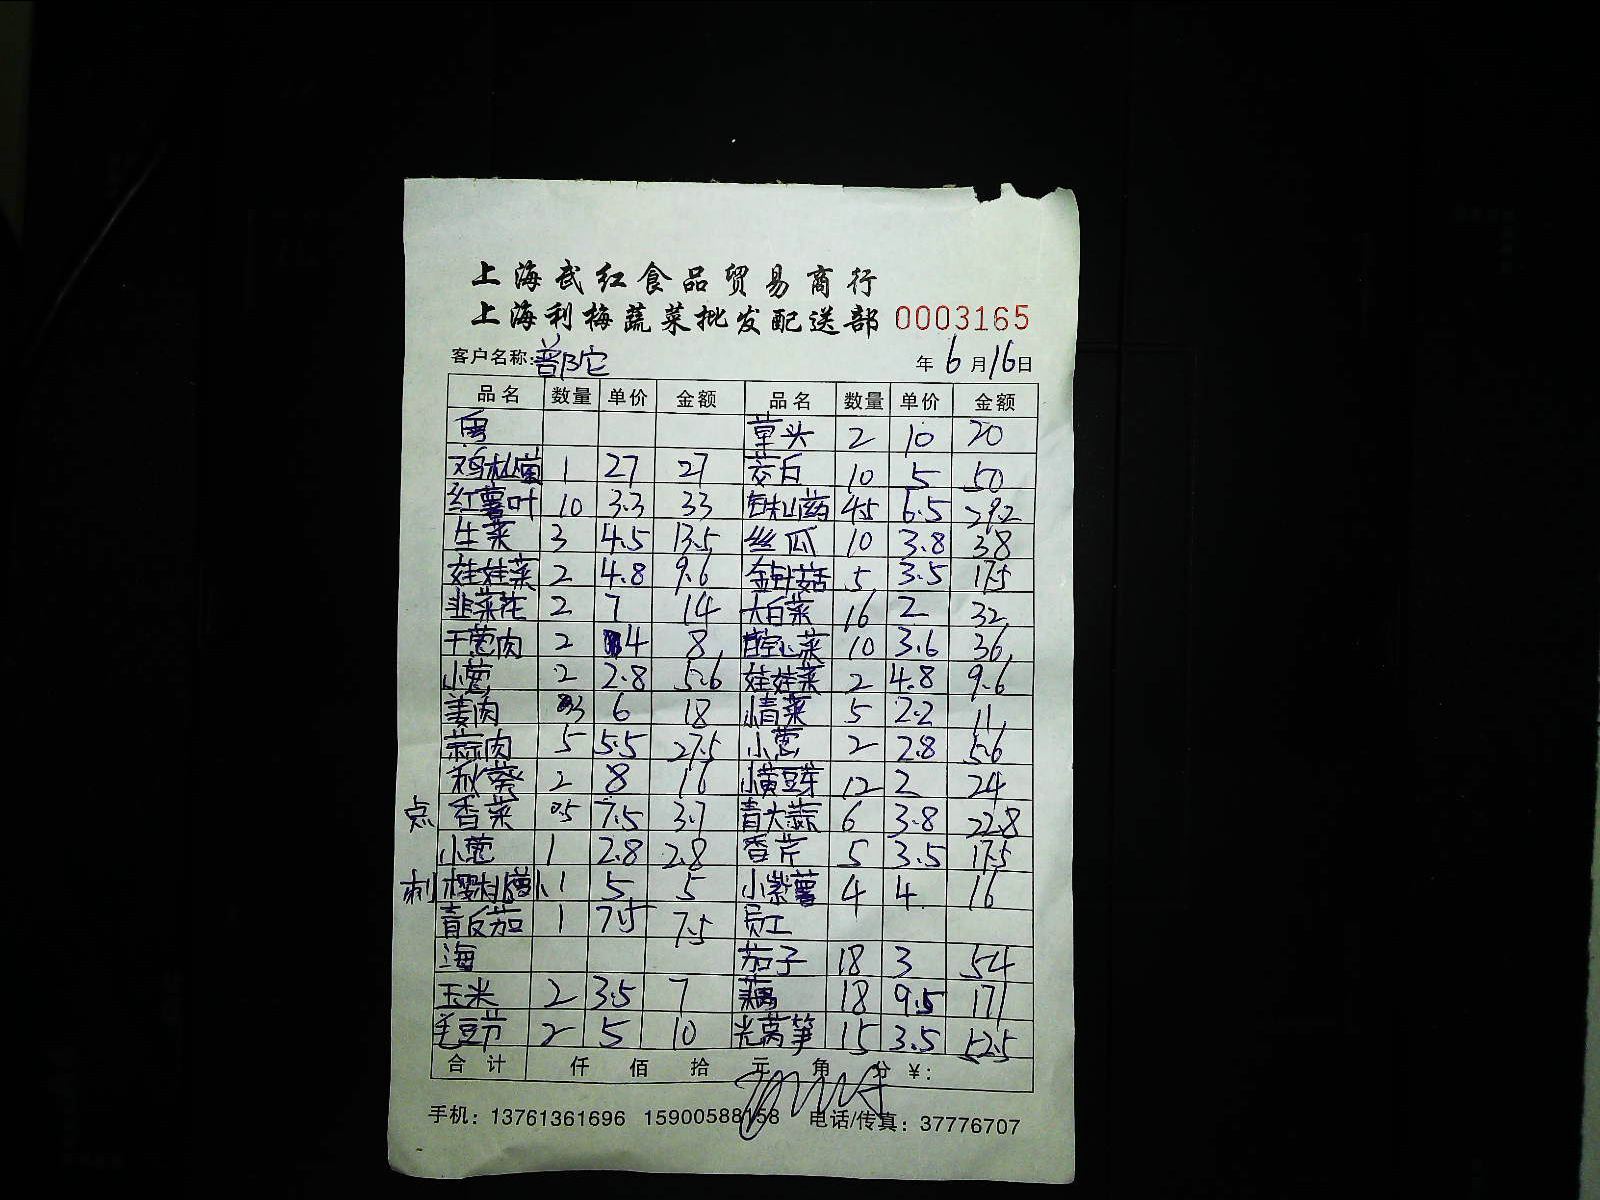 上海武红食品贸易商行
上海利梅蔬菜批发配送部 0003165
客户名称:普陀 年6月16日
品名 数量 单价 金额 品名 数量 单价 金额
草头 2 10 20
鸡枞菌 1 27 27 茭白 10 5 50
红薯叶 10 3.3 33 铁杆山药 4.5 6.5 29.2
生菜 3 4.5 13.5 丝瓜 10 3.8 38
娃娃菜 2 4.8 9.6 金针菇 5 3.5 17.5
韭菜花 2 7 14 大白菜 16 2 32
干葱肉 2 4 8 空心菜 10 3.6 36
小葱 2 2.8 5.6 娃娃菜 2 4.8 9.6
姜肉 3 6 18 小青菜 5 2.2 11
蒜肉 5 5.5 27.5 小葱 2 2.8 5.6
秋葵 2 8 16 小黄豆芽 12 2 24
点 香菜 0.5 7.5 3.7 青大蒜 6 3.8 22.8
小葱 1 2.8 2.8 香芹 5 3.5 17.5
刺 樱桃萝卜 1 5 5 小紫薯 4 4 16
青皮茄 1 7.5 7.5 员工
海 茄子 18 3 54
玉米 2 3.5 7 藕 18 9.5 171
毛豆节 2 5 10 光莴笋 15 3.5 52.5
合计 仟 佰 拾 元 角 分 ¥:
手机: 13761361696 15900588158 电话/传真: 37776707